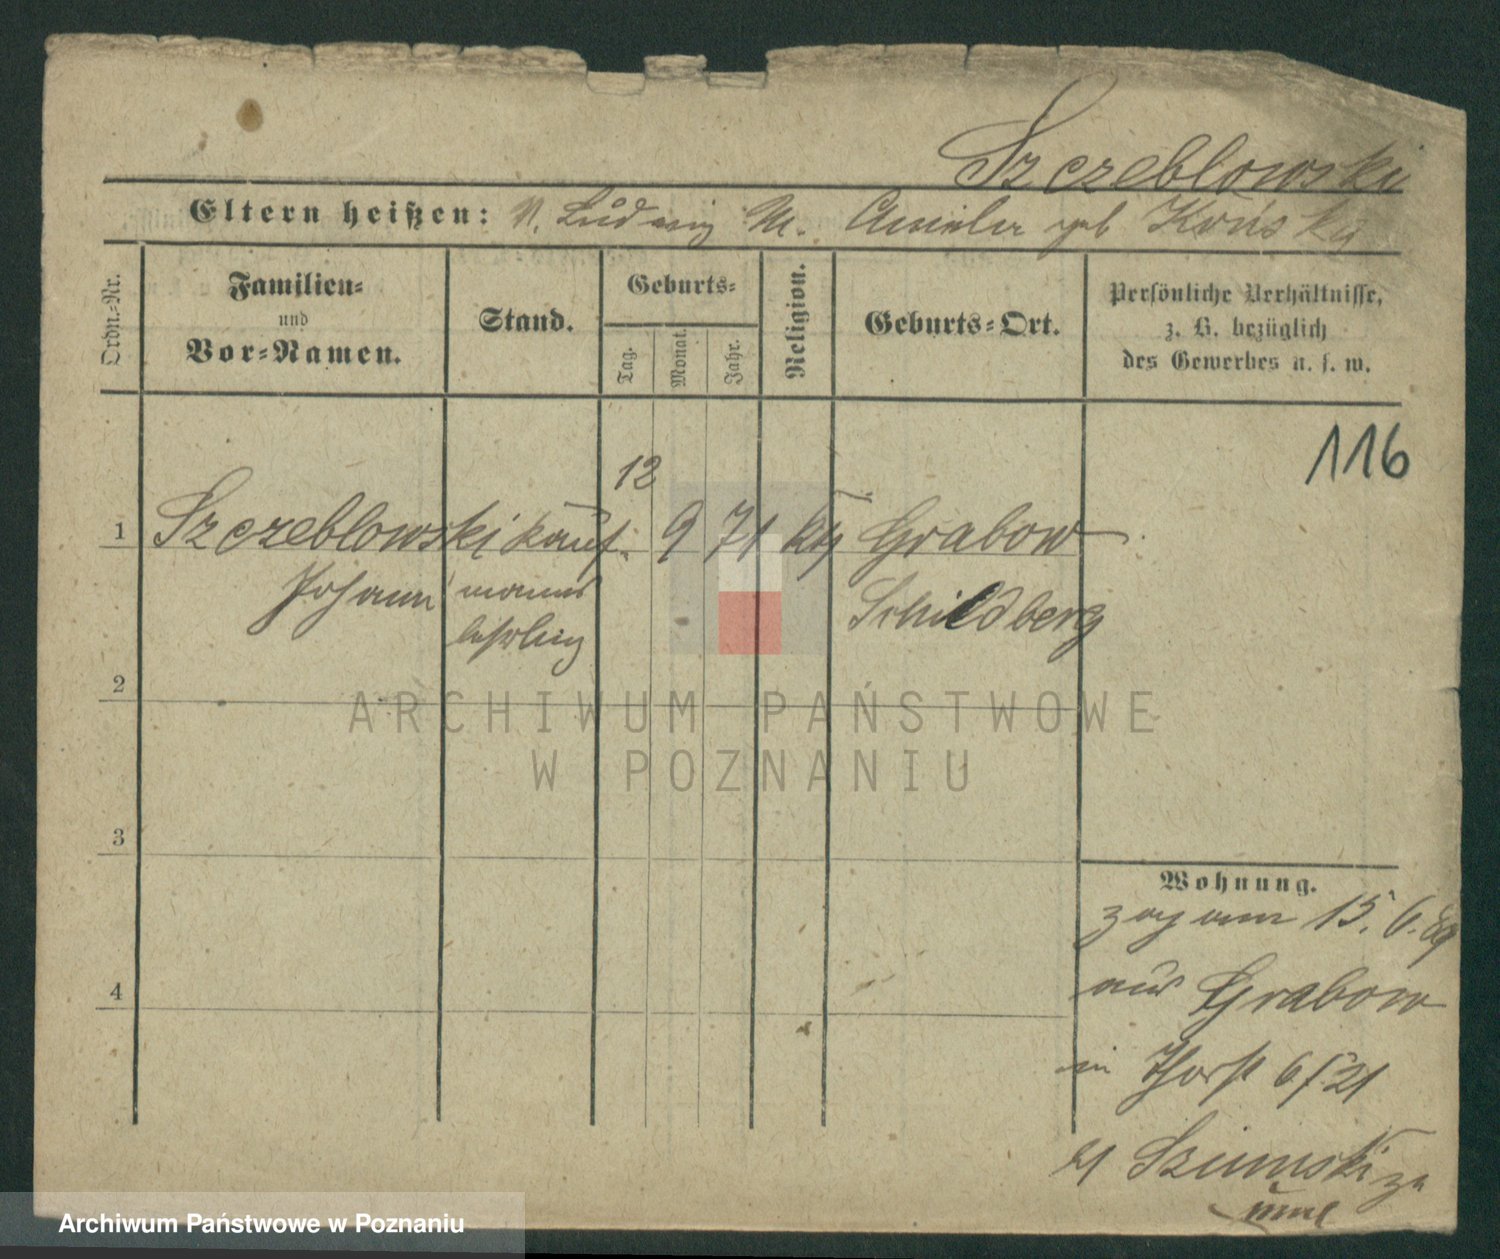 Szczeblowski
Eltern heißen: V. Ludwig M. geb Końsky
Ordn.-Nr.
Familien-
und
Vor-Namen.
Stand.
Geburts-
Tag.
Monat.
Jahr.
Religion.
Geburts-Ort.
Persönliche Verhältnisse,
z. B. bezüglich
des Gewerbes u. s. w.
116
1
Szczeblowski
Johann
Kauf-
manns
lehrling
12 9 71
kth
Grabow
Schildberg
2
3
4
Wohnung.
zog am 15. 6. 89
aus Grabow
in 6/21
Szumski zu
ARCHIWUM PAŃSTWOWE
W POZNANIU
Archiwum Państwowe w Poznaniu